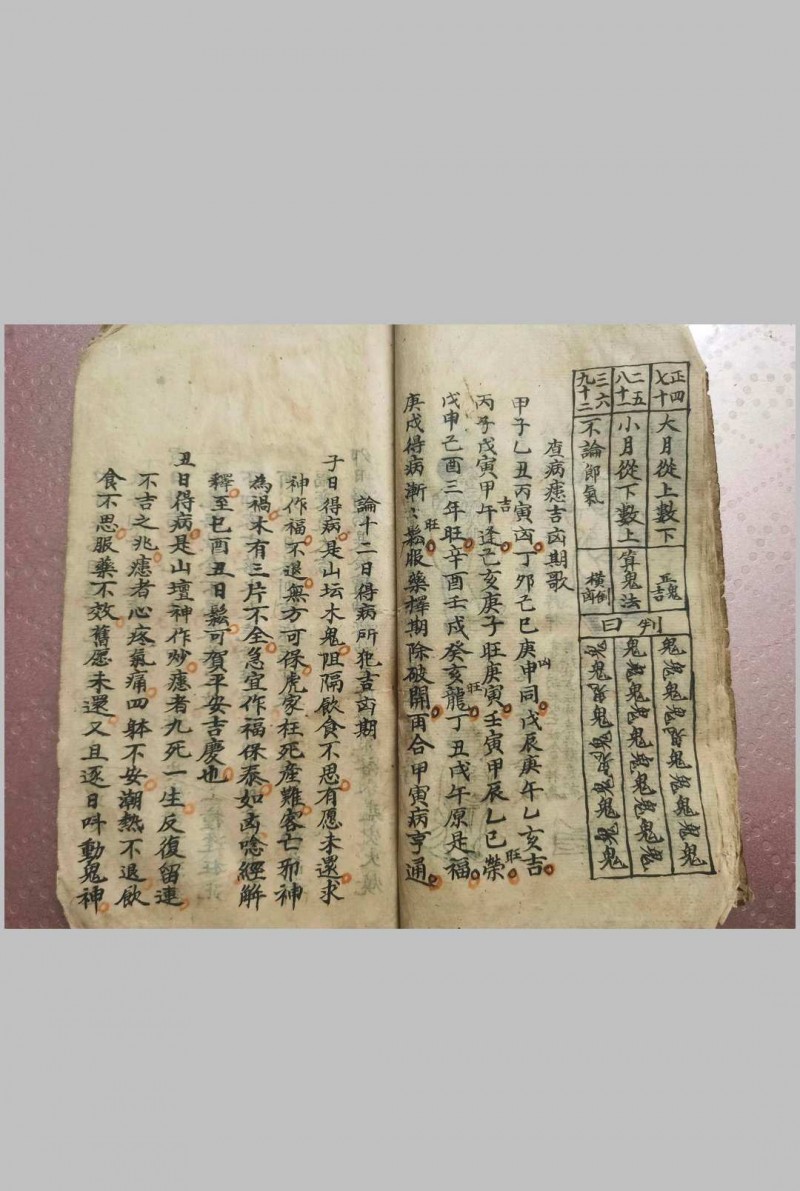 正四七十
大月從上數下
正鬼吉
二五八十一
小月從下數上
算鬼法
三六九十二
不論節氣
橫倒凶
判曰
查病痣吉凶期歌
甲子乙丑丙寅凶丁夘己巳庚申同戊辰庚午乙亥吉
丙子戊寅甲午逢己亥庚子旺庚寅壬寅甲辰乙巳榮
戊申己酉三年旺辛酉壬戌癸亥龍丁丑戊午原是福
庚戌得病漸〻鬆服藥擇期除破開両合甲寅病亨通
論十二日得病所犯吉凶期
子日得病是山坛木鬼阻隔飲食不思有愿未還求
神作福不退無方可保虎家枉死產難客亡邪神
為禍木有三片不全急宜作福保泰如凶唸經解
釋至巳酉丑日鬆可賀平安吉慶也
丑日得病是山壇神作妙痣者九死一生反復留連
不吉之兆痣者心疼氣痛四躰不安潮熱不退飲
食不思服藥不效舊愿未還又且逐日呌動鬼神